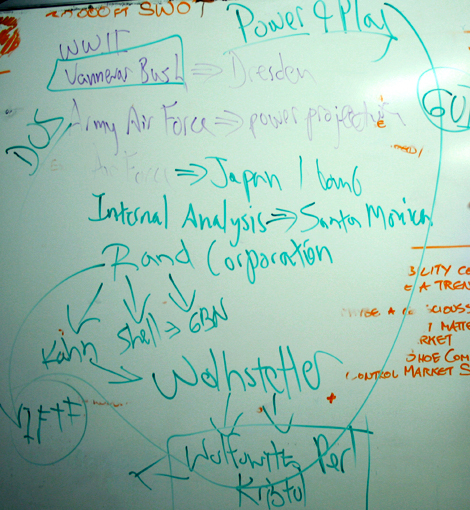 SWOT
Power & Play
WWII
Vannevar Bush ⇒ Dresden
Army Air Force ⇒ power projection
DOS
Air Force ⇒ Japan / bomb
Internal Analysis ⇒ Santa Monica
Rand Corporation
Kahn Shell → GBN
Wolhstetter
IFTF
Wolfowitz Perl
Kristol
BILITY CO
E A TREN
MAYBE A CIOUSS
I MATTE
RKET
SHOE COM
CONTROL MARKET S